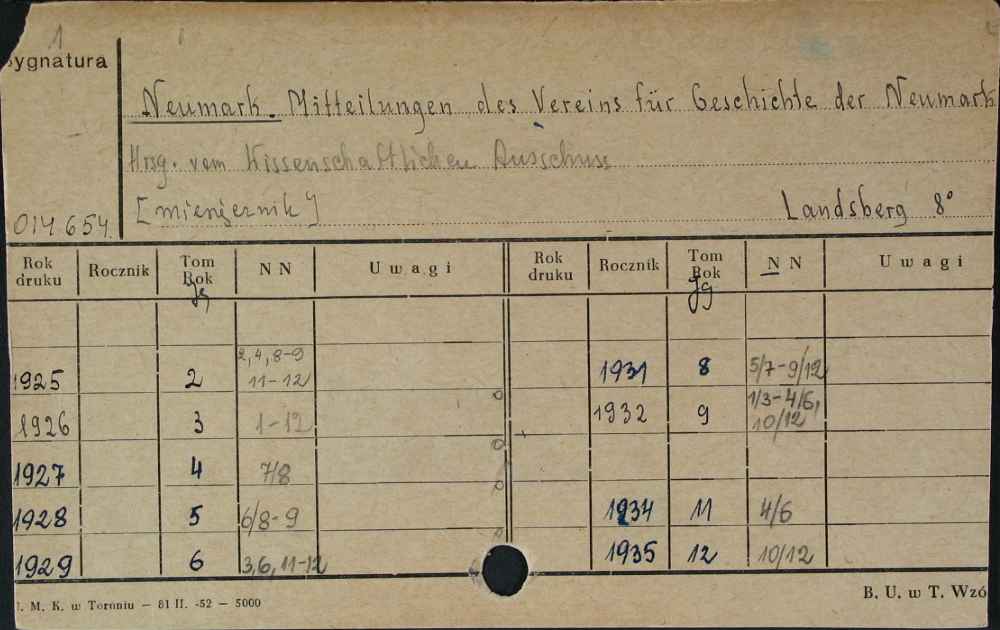 1
Sygnatura
Neumark. Mitteilungen des Vereins für Geschichte der Neumark
Hrsg. vom Wissenschaftlichen Ausschuss
[mieniernik]
Landsberg 8°
014.654.
Rok druku Rocznik Tom Rok NN Uwagi Rok druku Rocznik Tom Rok NN Uwagi
Jg Jg
1925 2 2,4,8-9 11-12 1931 8 5/7-9/12
1926 3 1-12 1932 9 1/3-4/6, 10/12
1927 4 7/8
1928 5 6/8-9 1934 11 4/6
1929 6 3,6,11-12 1935 12 10/12
M. K. w Toruniu — 81 II. -52 — 5000
B. U. w T. Wzó